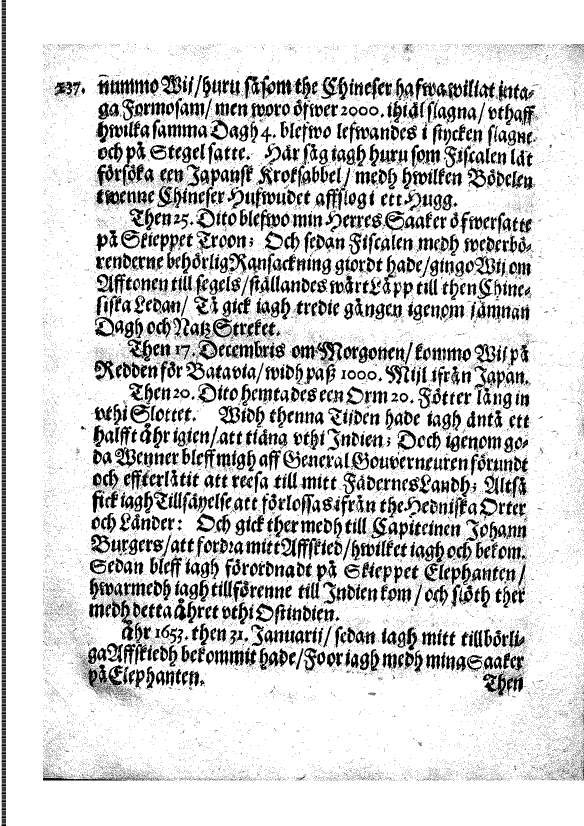 237. nummo Wij/huru såsom the Chineser hafwa williat inta-
ga Formosam/ men woro öfwer 2000. ihiäl slagna/ vthaff
hwilka samma Dagh 4. blefwo lefwandes i stycken slagne
och på Stegel satte. Här såg iagh huru som Fiscalen lät
försöka een Japansk Kroksabbel/ medh hwilken Bödelen
twenne Chineser Hufwudet affslog i ett Hugg.
Then 25. Dito blefwo min Herres Saaker öfwersatte
på Skieppet Troon; Och sedan Fiscalen medh wederbö-
renderne behörlig Ransackning giordt hade/gingo Wij om
Afftonen till segels/ställandes wårt Läpp till then Chine-
siska Ledan/ Tå gick iagh tredie gången igenom jämnan
Dagh och Natz Streket.
Then 17. Decembris om Morgonen/kommo Wij på
Redden för Batavia/widh paß 1000. Mijl ifrån Japan.
Then 20. Dito hemtades een Orm 20. Fötter lång in
vthi Slottet. Widh thenna Tijden hade iagh äntå ett
halfft åhr igien/att tiäna vthi Indien; Doch igenom go-
da Wenner bleff migh aff General Gouverneuren förundt
och effterlåtit att reesa till mitt Fädernes Landh; Altså
fick iagh Tillsäyelse att förlossas ifrån the Hedniska Orter
och Länder: Och gick ther medh till Capiteinen Johann
Burgers/att fordra mitt Affskied/hwilket iagh och bekom.
Sedan bleff iagh förordnadt på Skieppet Elephanten/
hwarmedh iagh tillförenne till Indien kom/ och slöth ther
medh detta åhret vthi Ostindien.
Åhr 1653. then 31. Januarii/ sedan iagh mitt tillbörli-
ga Affskiedh bekommit hade/Foor iagh medh ming Saaker
på Elephanten.
Then